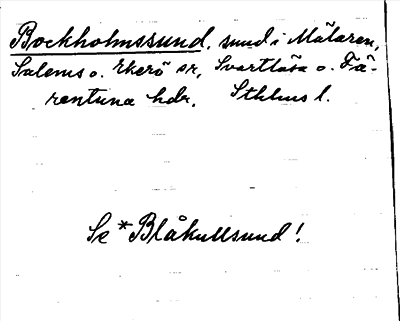 Bockholmssund, sund i Mälaren,
Salems o. Ekerö sr, Svartlösa o. Fä-
rentuna hdr. Sthlms l.
Se *Blåkullsund!